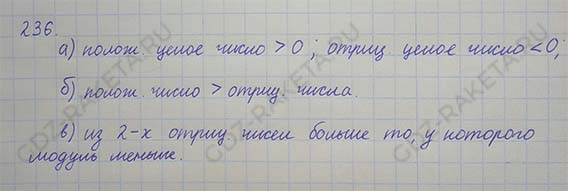 236.
а) полож. целое число > 0 ; отриц. целое число < 0;
б) полож. число > отриц. числа.
в) из 2-х отриц чисел больше то, у которого
модуль меньше.
GDZ-RAKETA.RU
GDZ-RAKETA.RU
GDZ-RAKETA.RU
GDZ-RAKETA.RU